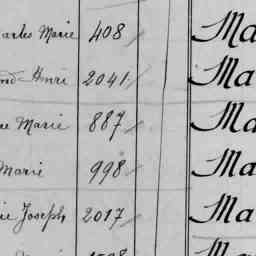 Charles Marie 408 Ma
Henri 2041 Ma
Marie 887 Ma
Marie 998 Ma
Joseph 2017 Ma
Ma